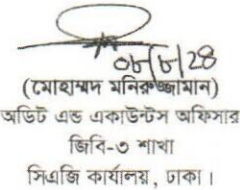 ০৮/৮/২৪
(মোহাম্মদ মনিরুজ্জামান)
অডিট এন্ড একাউন্টস অফিসার
জিবি-৩ শাখা
সিএজি কার্যালয়, ঢাকা।